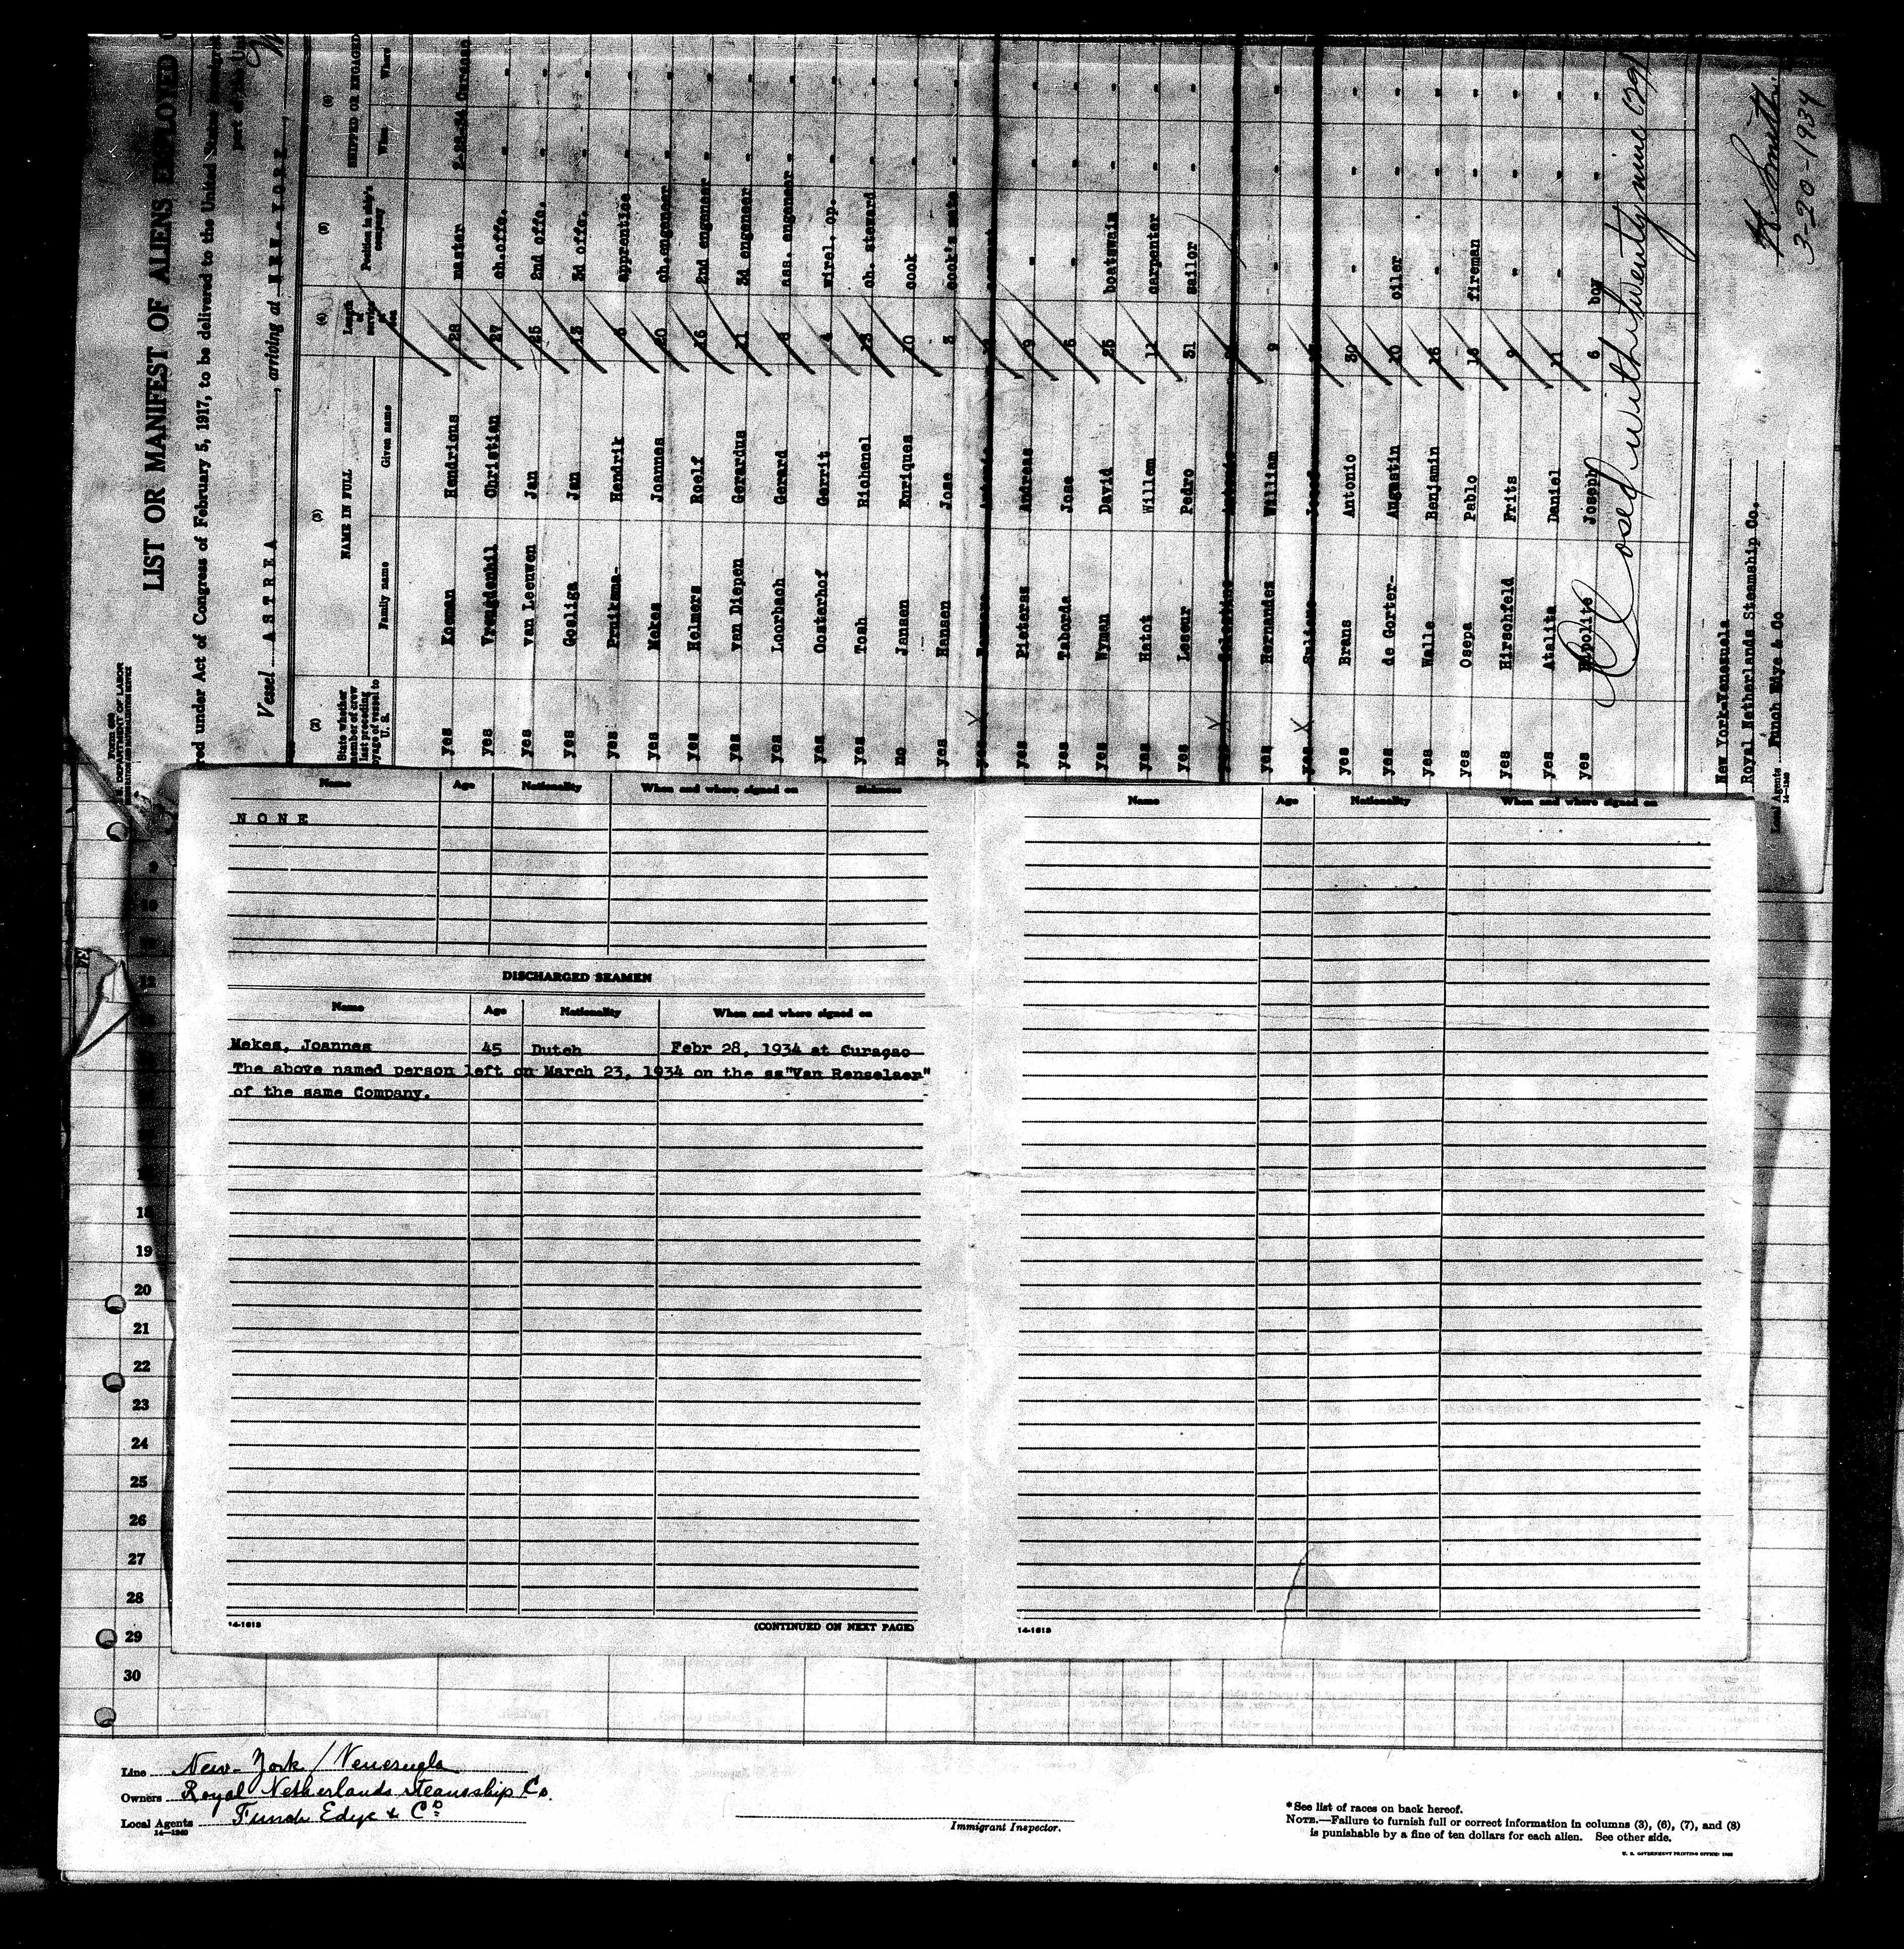 FORM 680
U. S. DEPARTMENT OF LABOR
LIST OR MANIFEST OF ALIENS EMPLOYED
red under Act of Congress of February 5, 1917, to be delivered to the United States
part of the
Vessel ASTREA, arriving at NEW-YORK,
(2) (3) (4) (5) (6)
State whether member of crew last preceding voyage of vessel to U. S.
NAME IN FULL
Family name Given name
Length of service at sea
Position in ship's company
SHIPPED OR ENGAGED
When Where
yes Koeman Hendricus 28 master Curacao
yes Vreugdenhil Christian 27 ch.offc. " "
yes van Leeuwen Jan 25 2nd offc. " "
yes Gosliga Jan 13 3d offc. " "
yes Pruiksma- Hendrik apprentice " "
yes Mekes Joannes 20 ch.engeneer " "
yes Helmers Roelf 16 2nd engeneer " "
yes van Diepen Gerardus 11 3d engeneer " "
yes Loorbach Gerard ass. engeneer " "
yes Oosterhof Gerrit 4 wirel. op. " "
yes Tosh Richenel 13 ch. steward " "
no Jansen Enriques 10 cook " "
yes Hansen Jose 3 cook's mate " "
yes X
yes Pieterss Andreas 9 " " "
yes Taborda Jose 6 " " "
yes Wyman David 25 boatswain " "
yes Hatot Willem 11 carpenter " "
yes Leseur Pedro 31 sailor " "
yes X
yes Hernandes William 9 " " "
yes X
yes Brens Antonio 30 " " "
yes de Gorter- Augustin 20 oiler " "
yes Walle Benjamin 16 " " "
yes Osepa Pablo fireman " "
yes Hirschfeld Frits 9 " " "
yes Atalita Daniel 11 " " "
yes Joseph 6 boy " "
Closed with twenty nine (29)
New York-Venezuela
Royal Netherlands Steamship Co.
Local Agents Funch Edye & Co
14-1240
3-20-1934
Name Age Nationality When and where signed on Sickness
NONE
DISCHARGED SEAMEN
Name Age Nationality When and where signed on
Mekes, Joannes 45 Dutch Febr 28, 1934 at Curaçao
The above named person left on March 23, 1934 on the ss"Van Renselaer"
of the same Company.
14-1613
(CONTINUED ON NEXT PAGE)
Name Age Nationality When and where signed on
14-1613
9
10
12
18
19
20
21
22
23
24
25
26
27
28
29
30
Line New-York/Venezuela
Owners Royal Netherlands Steamship Co.
Local Agents Funch Edye & Co
14-1240
Immigrant Inspector.
*See list of races on back hereof.
NOTE.—Failure to furnish full or correct information in columns (3), (6), (7), and (8)
is punishable by a fine of ten dollars for each alien. See other side.
U. S. GOVERNMENT PRINTING OFFICE: